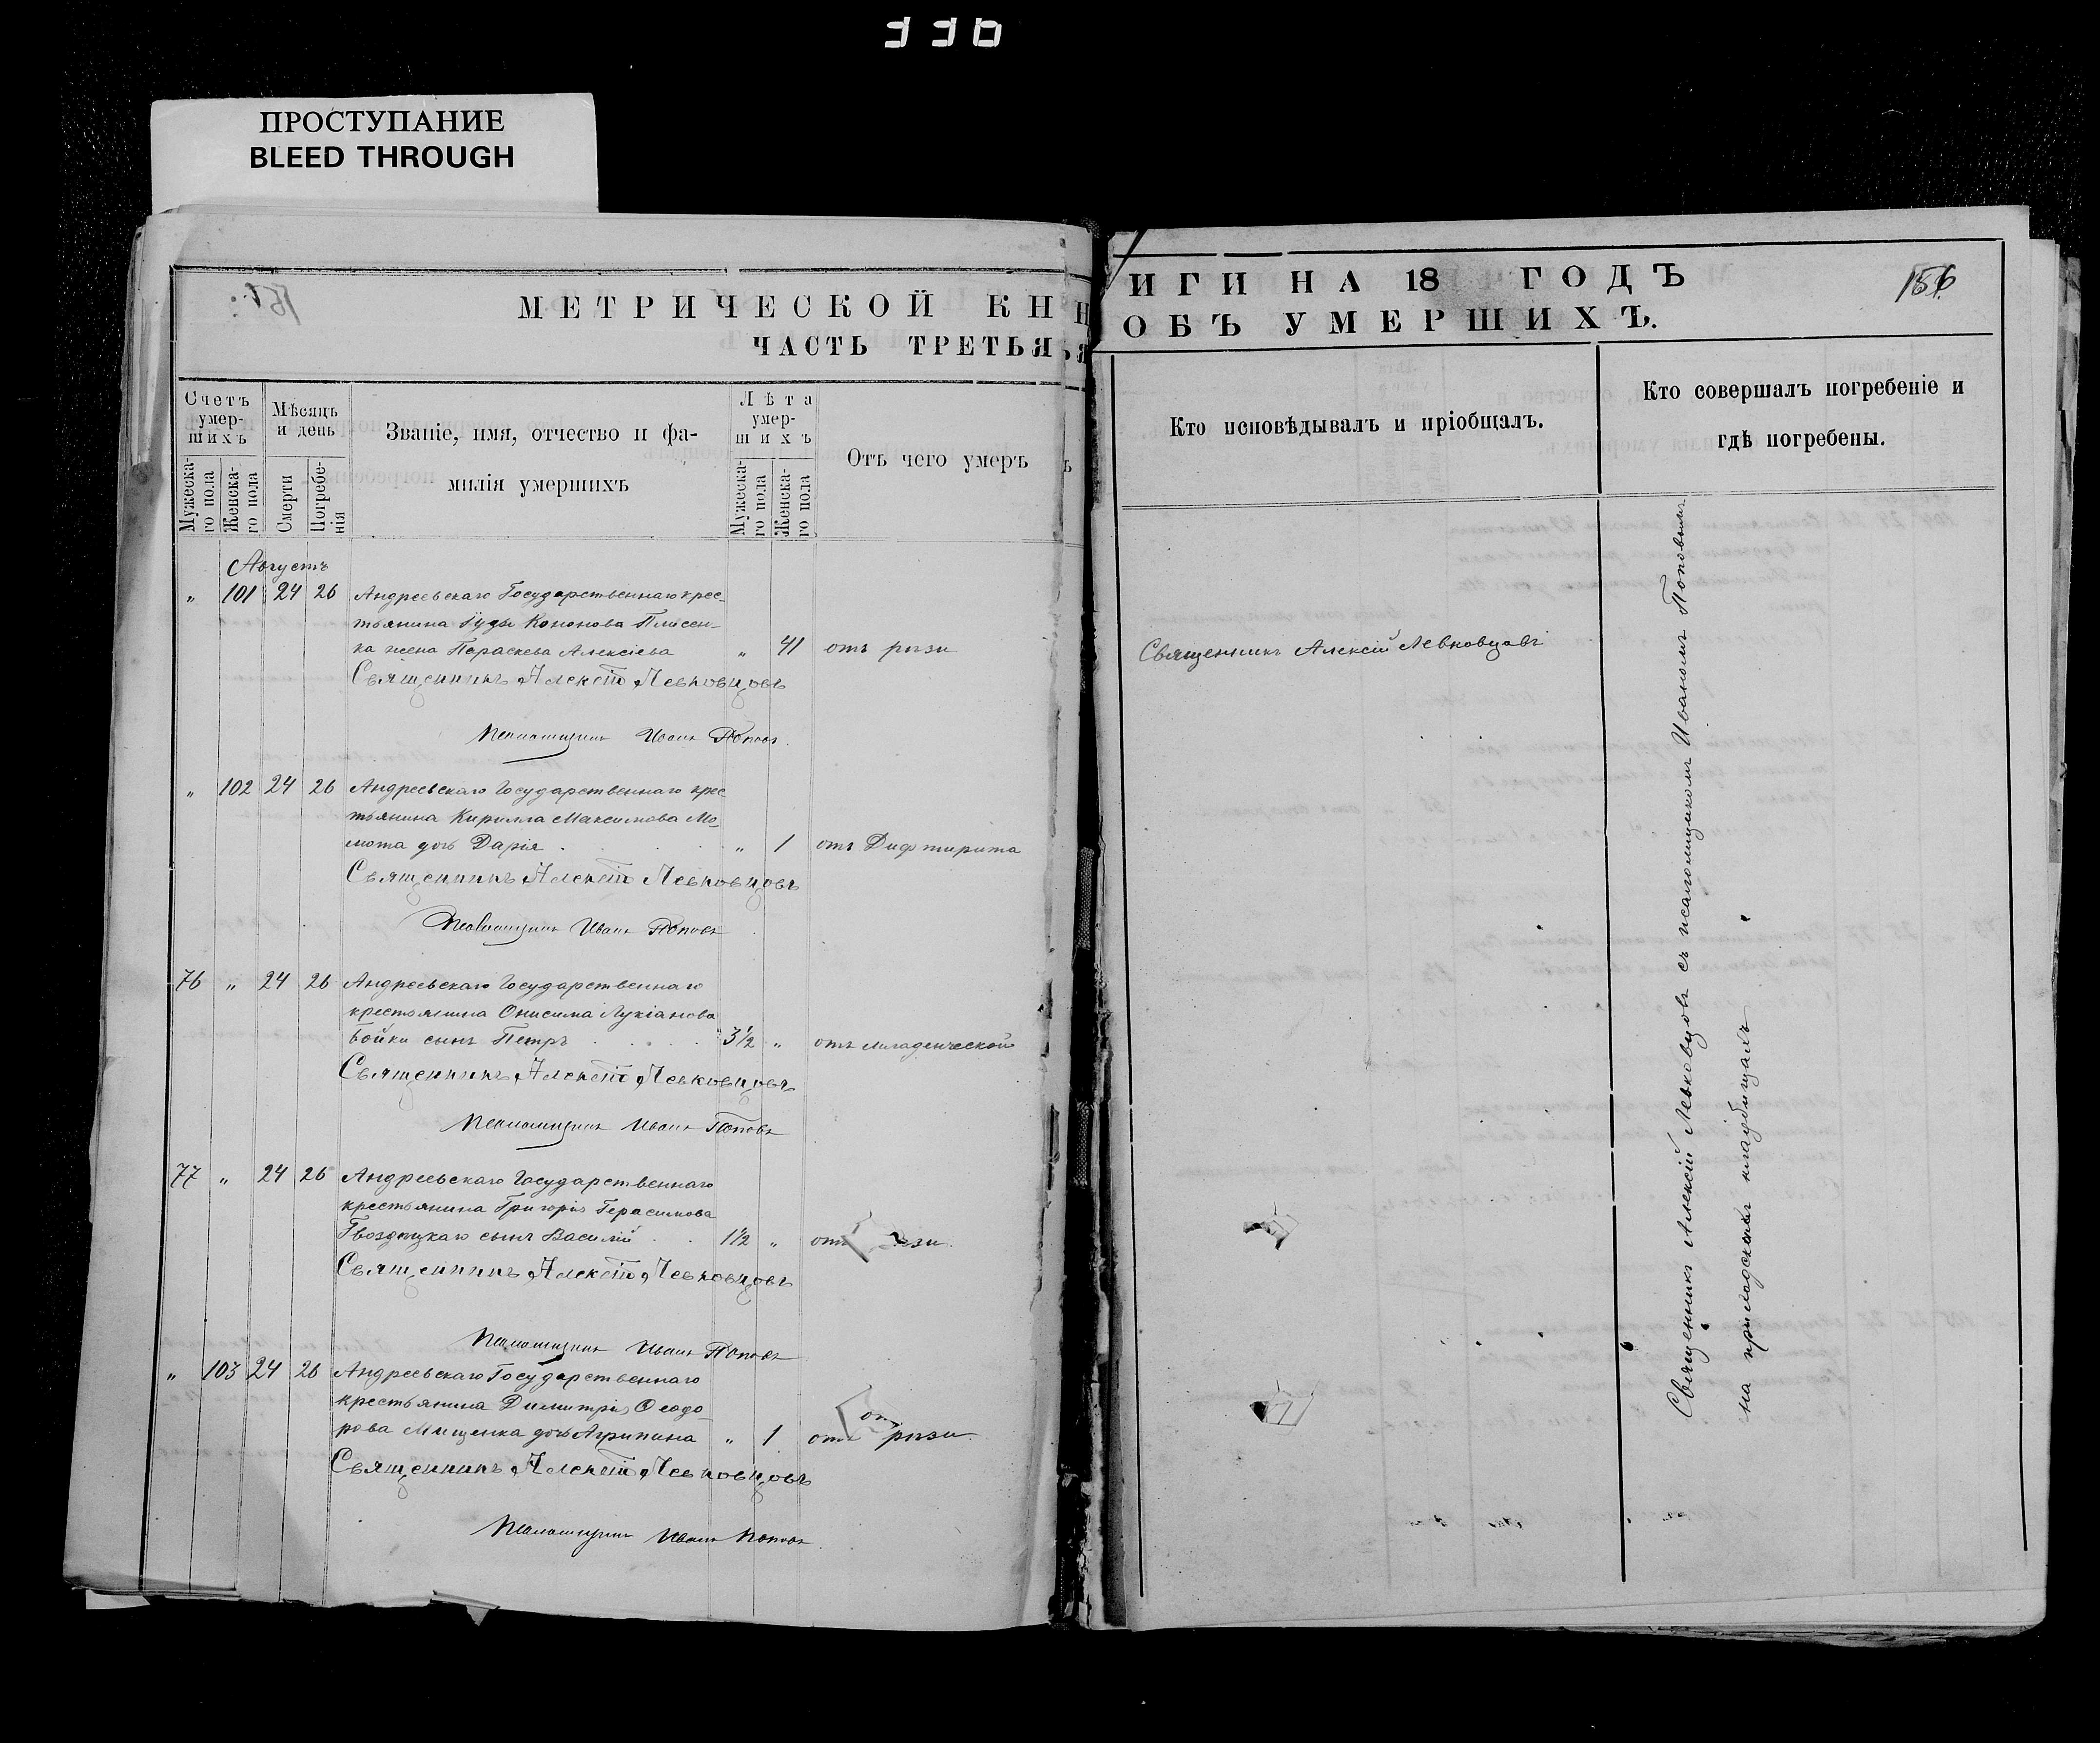 336
ПРОСТУПАНИЕ
BLEED THROUGH
МЕТРИЧЕСКОЙ КН
ЧАСТЬ ТРЕТЬЯ
Счетъ умер-
шихъ
Мужеска-
го пола
Женска-
го пола
Мѣсяцъ
и день
Смерти
Погребе-
нія
Званіе, имя, отчество и фа-
милія умершихъ
Лѣта
умер-
шихъ
Мужеска-
го пола
Женска-
го пола
Отъ чего умеръ
Августъ
" 101 24 26 Андреевскаго Государственнаго крес-
тьянина Іуды Кононова
ка жена Параскева Алексіева " 41 отъ рѣзи
Священникъ Алексій Левковцовъ
Псаломщикъ Иванъ Поповъ
" 102 24 26 Андреевскаго Государственнаго крес
тьянина Кирилла Максимова Мо-
мота дочь Дарія " 1 отъ Дифтирита
Священникъ Алексій Левковцовъ
Псаломщикъ Иванъ Поповъ
76 " 24 26 Андреевскаго Государственнаго
крестьянина Онисима Лукіанова
Бойки сынъ Петръ 3½ " отъ младенческой
Священникъ Алексій Левковцовъ
Псаломщикъ Иванъ Поповъ
77 " 24 26 Андреевскаго Государственнаго
крестьянина Григорія Герасимова
Гвоздицкаго сынъ Василій 1½ " отъ
Священникъ Алексій Левковцовъ
Псаломщикъ Иванъ Поповъ
" 103 24 26 Андреевскаго Государственнаго
крестьянина Димитрія Ѳеодо-
рова Мищенка дочь Агрипина " 1 отъ рѣзи
Священникъ Алексій Левковцовъ
Псаломщикъ Иванъ Поповъ
ИГИ НА 18 ГОДЪ
ОБЪ УМЕРШИХЪ.
Кто исповѣдывалъ и пріобщалъ.
Кто совершалъ погребеніе и
гдѣ погребены.
Священникъ Алексій Левковцовъ
Священникъ Алексій Левковцовъ съ псаломщикомъ Иваномъ Поповымъ
на приходскомъ кладбищѣ